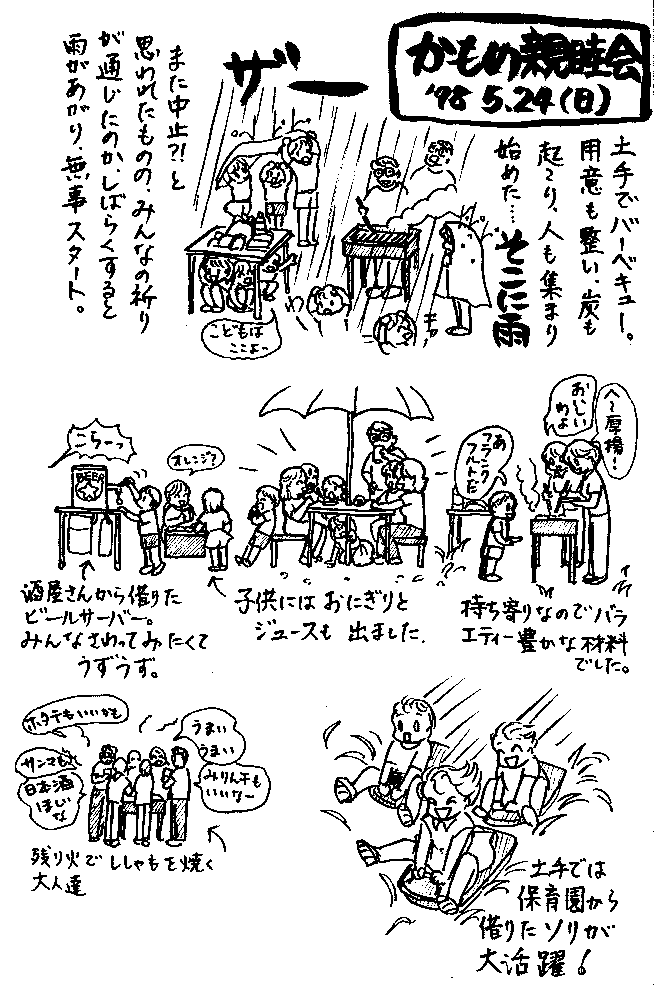 かもめ親睦会
'98 5.24(日)
土手でバーベキュー。
用意も整い、炭も
起こり、人も集まり
始めた…そこに雨
ザー
また中止?!と
思われたものの、みんなの祈り
が通じたのか、しばらくすると
雨があがり、無事スタート。
こどもは
ここよっ
わ
キャ
へ〜厚揚!
おいしい
わよ
あ
フランク
フルトだ
オレンジ?
こらーっ
BEER
酒屋さんから借りた
ビールサーバー。
みんなさわってみたくて
うずうず。
子供にはおにぎりと
ジュースも出ました.
持ち寄りなのでバラ
エティー豊かな材料
でした。
ホタテもいいかも
サンマも
日本酒
ほしいな
うまい
うまい
みりん干も
いいなー
残り火でししゃもを焼く
大人達
土手では
保育園から
借りたソリが
大活躍!